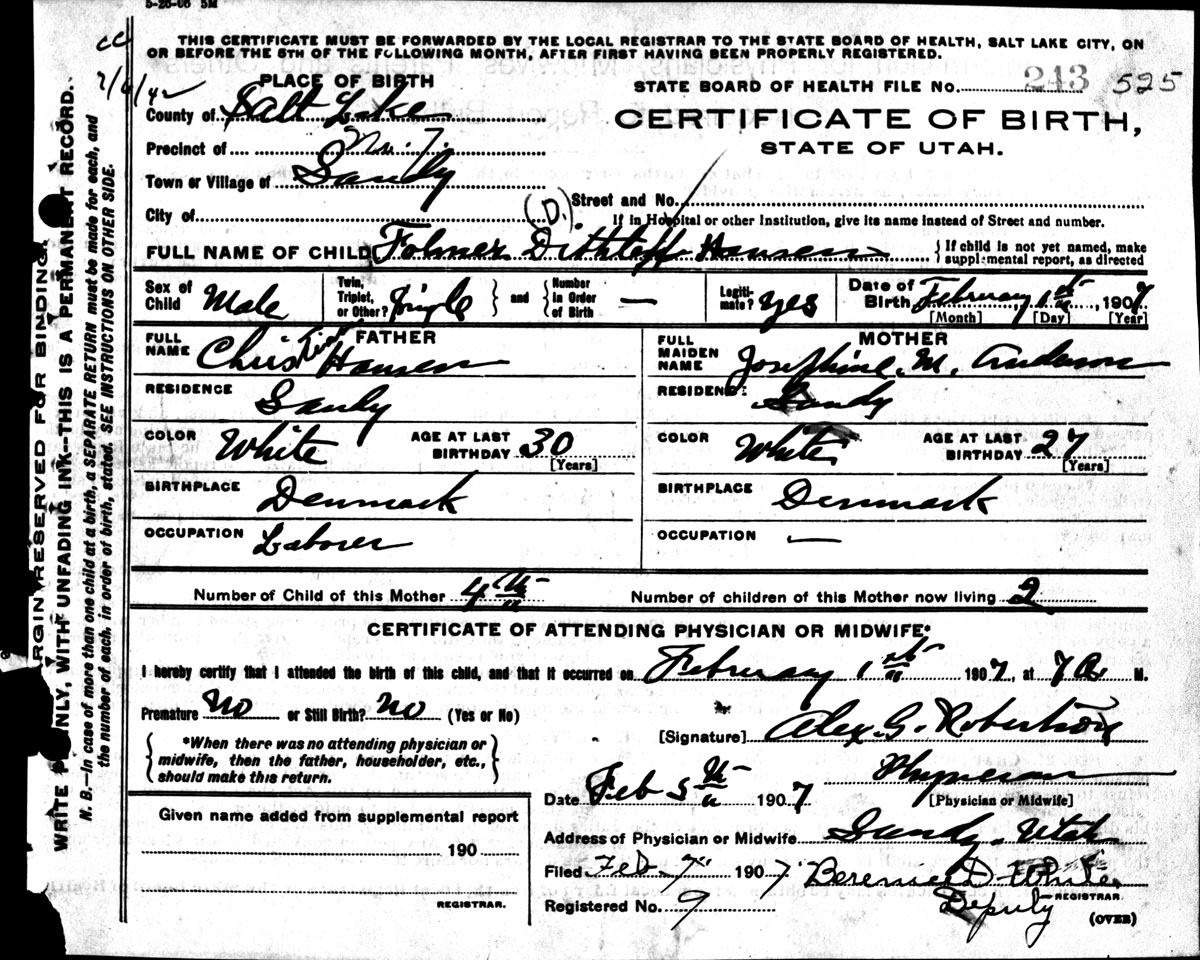 5-26-06 5M
cc
THIS CERTIFICATE MUST BE FORWARDED BY THE LOCAL REGISTRAR TO THE STATE BOARD OF HEALTH, SALT LAKE CITY, ON
OR BEFORE THE 5TH OF THE FOLLOWING MONTH, AFTER FIRST HAVING BEEN PROPERLY REGISTERED.
PLACE OF BIRTH
STATE BOARD OF HEALTH FILE No. 243 525
County of Salt Lake
CERTIFICATE OF BIRTH,
STATE OF UTAH.
Precinct of No. 7.
Town or Village of Sandy
City of (D.) Street and No.
If in Hospital or other Institution, give its name instead of Street and number.
FULL NAME OF CHILD Folmer Dithloff Hansen { If child is not yet named, make supplemental report, as directed
Sex of Child Male Twin, Triplet, or Other? Single } and { Number in Order of Birth — Legitimate? yes Date of Birth February 1st, 1907
[Month] [Day] [Year]
FATHER
FULL NAME Christian Hansen
RESIDENCE Sandy
COLOR White AGE AT LAST BIRTHDAY 30 [Years]
BIRTHPLACE Denmark
OCCUPATION Laborer
MOTHER
FULL MAIDEN NAME Josephine. M. Anderson
RESIDENCE Sandy
COLOR White AGE AT LAST BIRTHDAY 27 [Years]
BIRTHPLACE Denmark
OCCUPATION —
Number of Child of this Mother 4th Number of children of this Mother now living 2
CERTIFICATE OF ATTENDING PHYSICIAN OR MIDWIFE*
I hereby certify that I attended the birth of this child, and that it occurred on February 1st 1907, at 7 A. M.
Premature No or Still Birth? No (Yes or No)
[Signature] Alex. G. Robertson
{ *When there was no attending physician or
midwife, then the father, householder, etc.,
should make this return. }
Date Feb 5th 1907 Physician
[Physician or Midwife]
Given name added from supplemental report
190
REGISTRAR.
Address of Physician or Midwife Sandy. Utah
Filed Feb. 7 1907. Berenice D. White
REGISTRAR.
Registered No. 9 Deputy
(OVER)
MARGIN RESERVED FOR BINDING.
WRITE PLAINLY, WITH UNFADING INK—THIS IS A PERMANENT RECORD.
N. B.—In case of more than one child at a birth, a SEPARATE RETURN must be made for each, and
the number of each, in order of birth, stated. SEE INSTRUCTIONS ON OTHER SIDE.